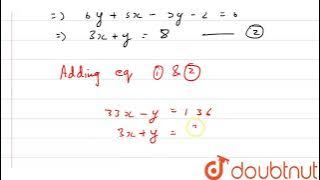 =) 6y + 5x - 5y - 2 = 6
=) 3x + y = 8 —— ②
Adding eq ① & ②
33x - y = 136
3x + y =
doubtnut